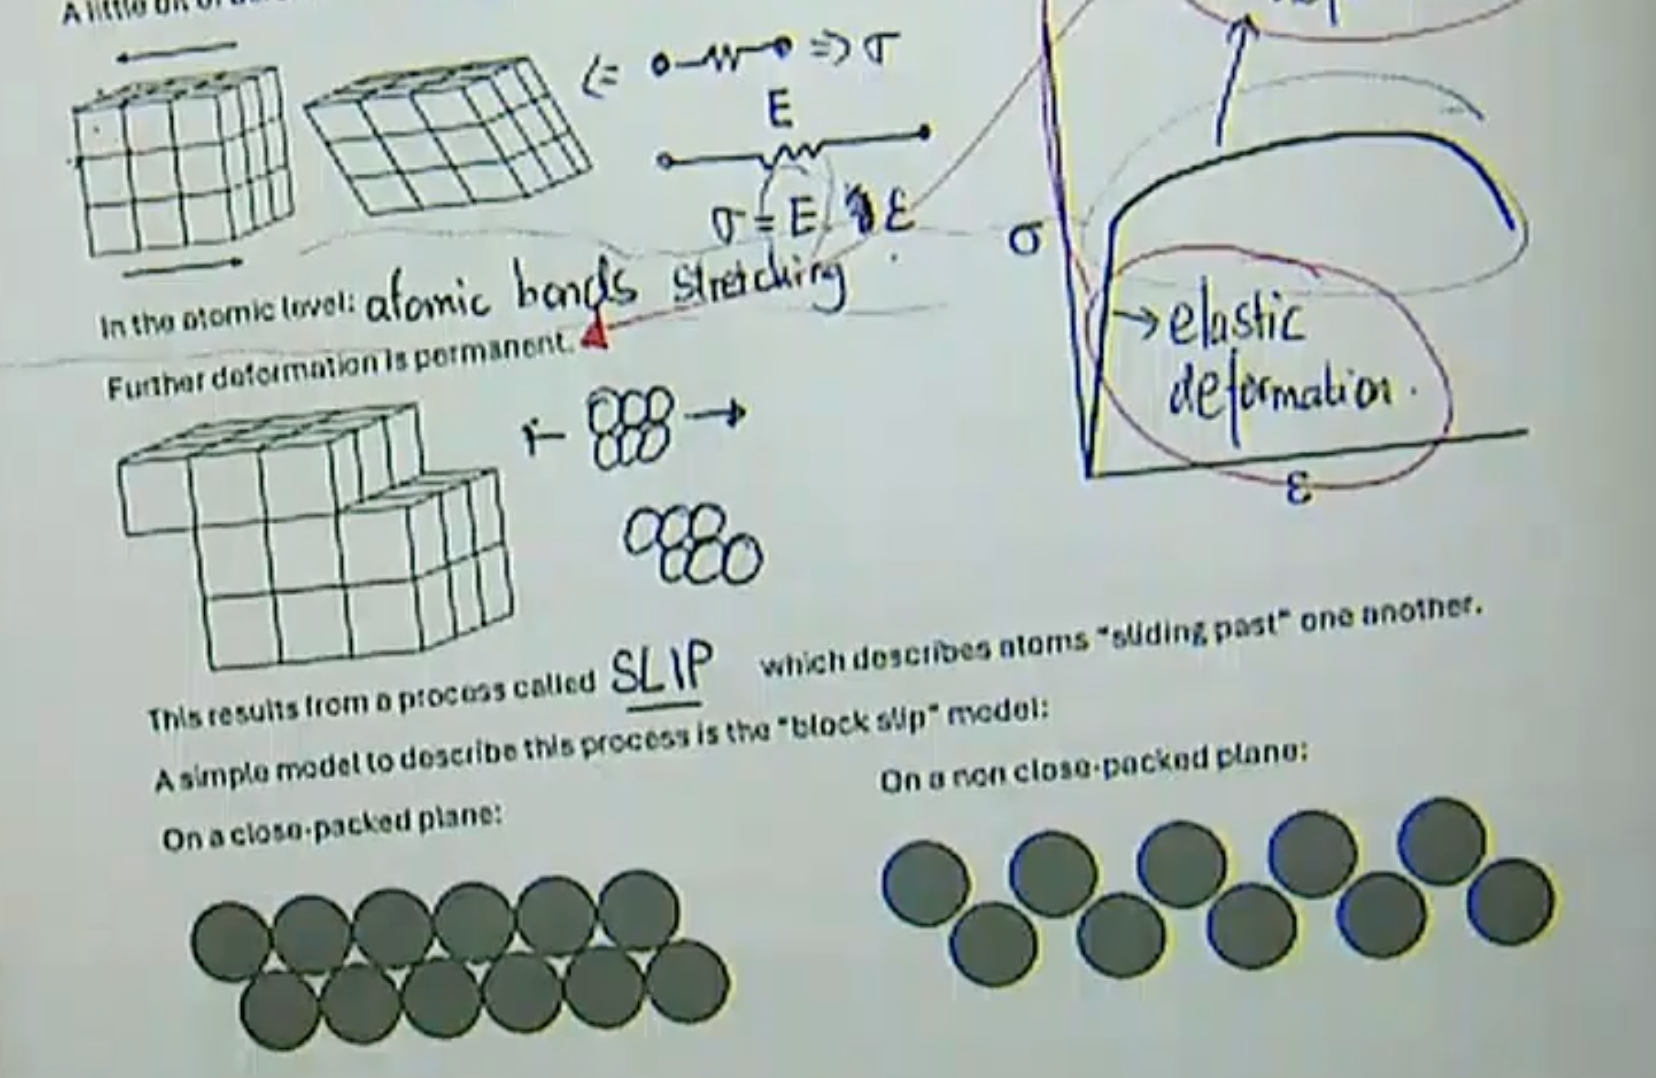 A little
⇐ ⇒ σ
E
σ = E ε
σ
In the atomic level: atomic bonds stretching
Further deformation is permanent.
→ elastic
deformation.
ε
This results from a process called SLIP which describes atoms "sliding past" one another.
A simple model to describe this process is the "block slip" model:
On a close-packed plane:
On a non close-packed plane: